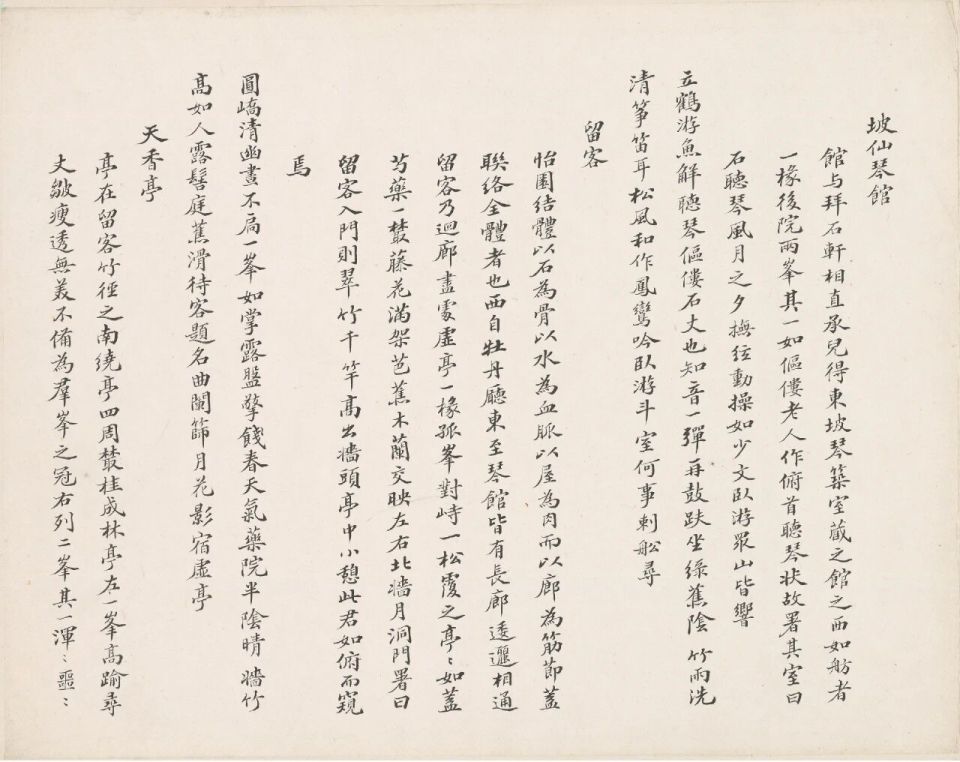 坡仙琴館
館与拜石軒相直承兒得東坡琴築室蔵之館之西如舫者
一椽後院兩峯其一如傴僂老人作俯首聽琴狀故署其室曰
石聽琴風月之夕撫絃動操如少文臥游眾山皆響
立鶴游魚解聽琴傴僂石丈也知音一彈再鼓趺坐綠蕉陰竹雨洗
清箏笛耳松風和作鳳鸞吟臥游斗室何事刺船尋
留客
怡園結體以石為骨以水為血脈以屋為肉而以廊為筋節蓋
聯絡全體者也西自牡丹廳東至琴館皆有長廊逶邐相通
留客乃迴廊盡處虛亭一椽孤峯對峙一松覆之亭〻如蓋
芍藥一叢藤花滿架芭蕉木蘭交映左右北牆月洞門署曰
留客入門則翠竹千竿高出牆頭亭中小憩此君如俯而窺
焉
圓嶠清幽晝不扃一峯如掌露盤擎餞春天氣藥院半陰晴牆竹
高如人露髻庭蕉滑待客題名曲闌篩月花影宿虛亭
天香亭
亭在留客竹徑之南繞亭四周叢桂成林亭左一峯高踰尋
丈皺瘦透無美不備為羣峯之冠右列二峯其一渾〻噩〻